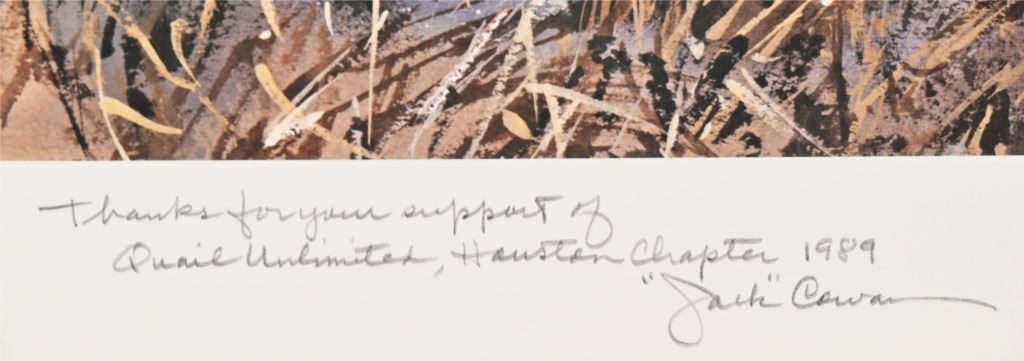 Thanks for your support of
Quail Unlimited, Houston Chapter 1989
"Jack" Cowan